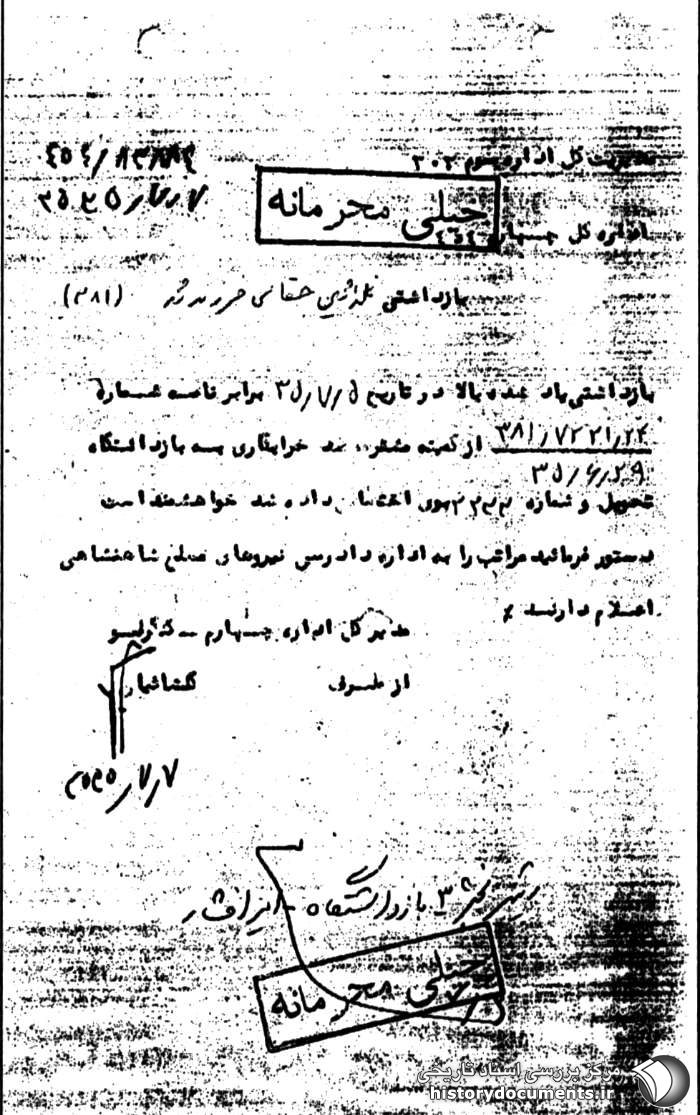 مدیریت کل اداره سوم ۳۰۲
۴۵۴/
۲۵۳۵/۷/۷
خیلی محرمانه
اداره کل چهارم ۴۵۴
بازداشتی حقانی فرزند (۳۸۱)
بازداشتی یاد شده بالا در تاریخ ۳۵/۷/۵ برابر نامه شماره
۳۸۱/۷۲۲۱/۲۴ از کمیته مشترک ضد خرابکاری به بازداشتگاه
۳۵/۶/۲۹
تحویل و شماره بوی اختصاص داده شد خواهشمند است
دستور فرمائید مراتب را به اداره دادرسی نیروهای مسلح شاهنشاهی
اعلام دارند
مدیر کل اداره چهارم
از طرف
۲۵۳۵/۷/۷
بازداشتگاه
خیلی محرمانه
مرکز بررسی اسناد تاریخی
historydocuments.ir